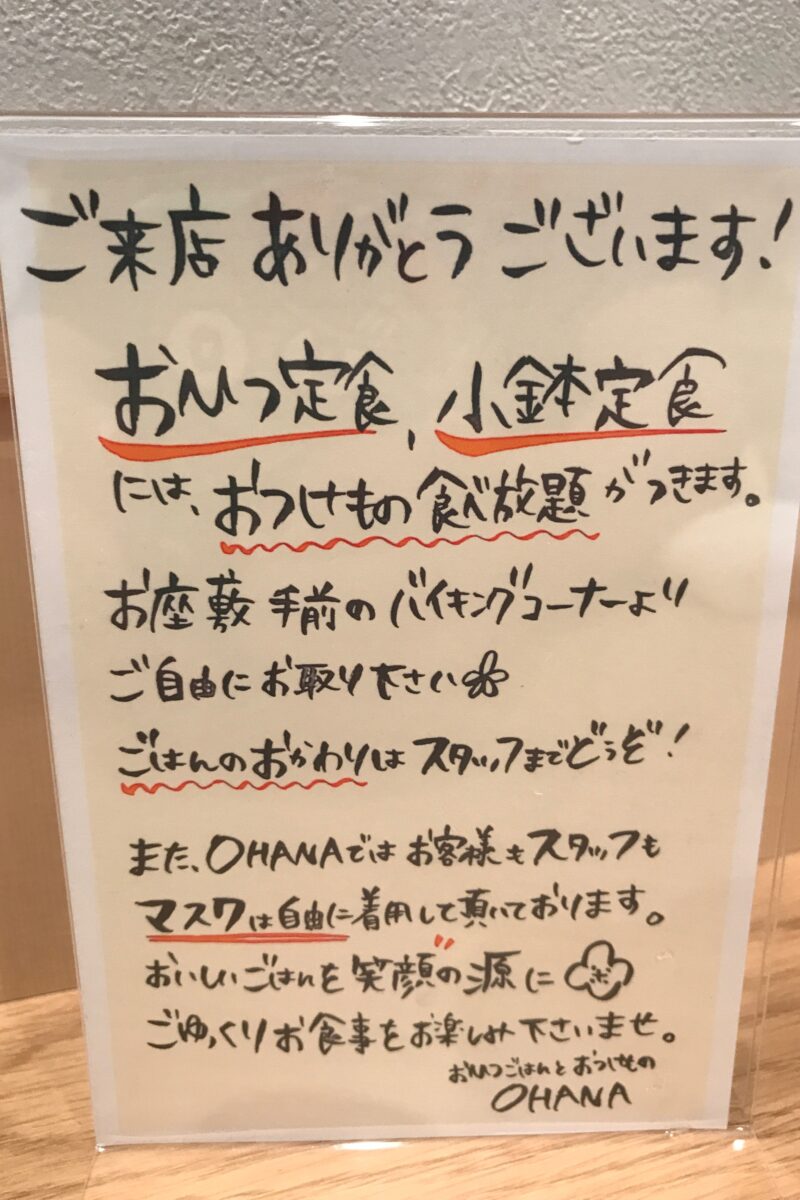 ご来店ありがとうございます!
おひつ定食、小鉢定食
には、おつけもの食べ放題がつきます。
お座敷手前のバイキングコーナーより
ご自由にお取り下さい
ごはんのおかわりはスタッフまでどうぞ!
また、OHANAではお客様もスタッフも
マスクは自由に着用して頂いております。
おいしいごはんを笑顔の源に
ごゆっくりお食事をお楽しみ下さいませ。
おひつごはんとおつけもの
OHANA